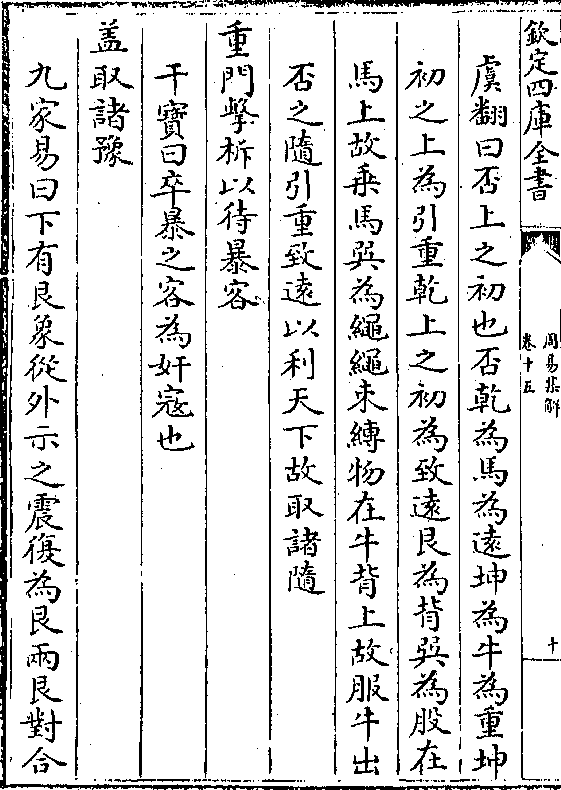 欽定四庫全書
周易集解
卷十五
十
虞翻曰否上之初也否乾為馬為逺坤為牛為重坤
初之上為引重乾上之初為致逺艮為背巽為股在
馬上故乗馬巽為繩繩束縛物在牛背上故服牛出
否之隨引重致逺以利天下故取諸隨
重門擊柝以待暴客
干寶曰卒暴之客為奸寇也
盖取諸豫
九家易曰下有艮象從外示之震復為艮兩艮對合